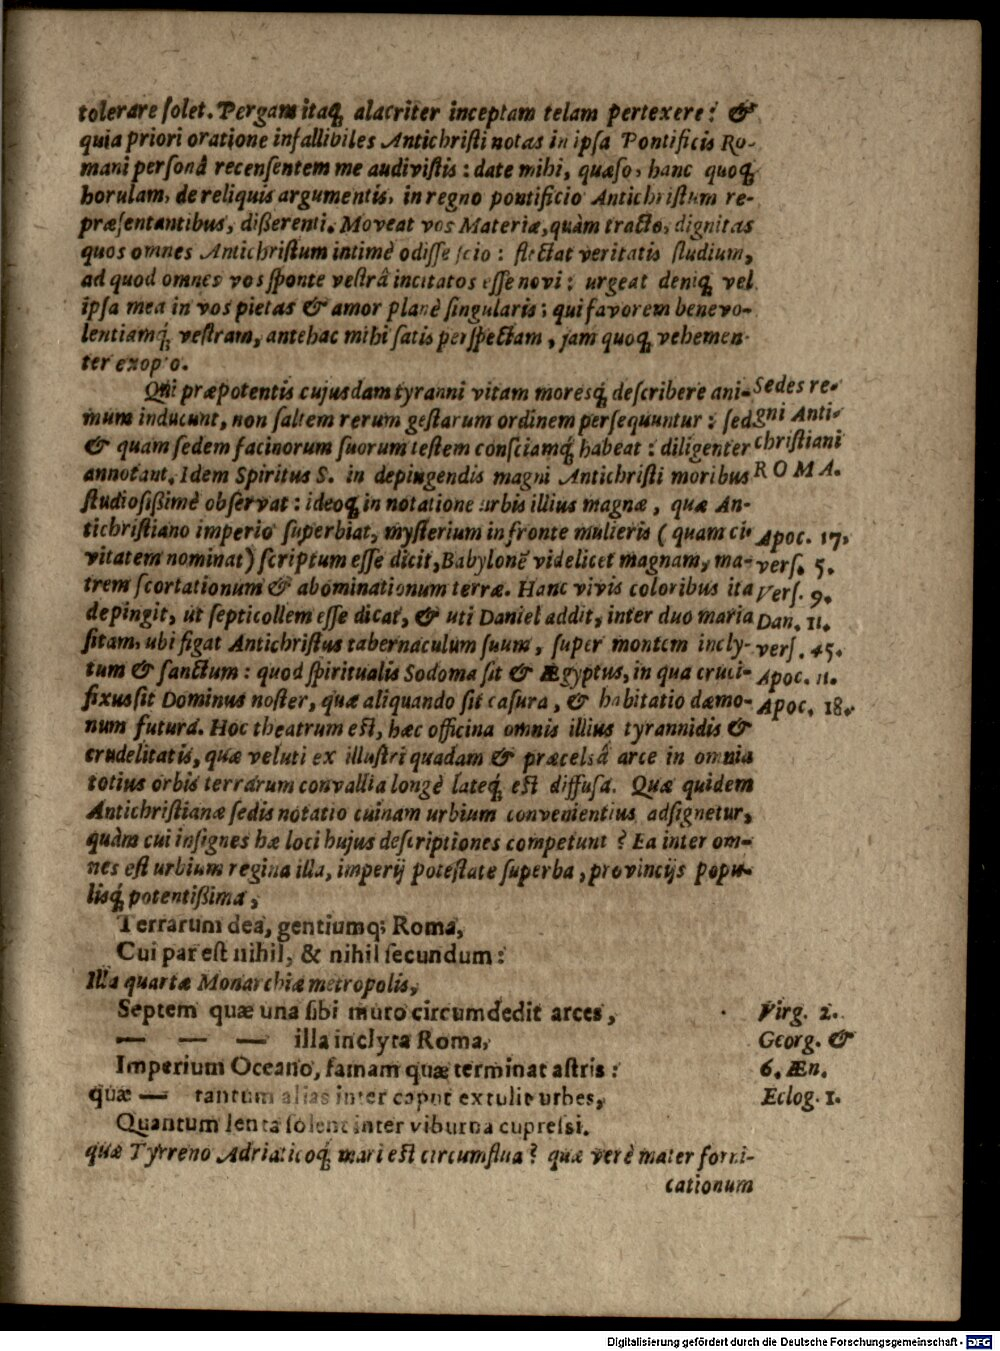 tolerare ſolet. Pergam itaq́; alacriter inceptam telam pertexere: &
quia priori oratione infallibiles Antichriſti notas in ipſa Pontificis Ro-
mani perſonâ recenſentem me audiviſtis: date mihi, quæſo, hanc quoq́;
horulam, de reliquis argumentis, in regno pontificio Antichriſtum re-
præſentantibus, dißerenti. Moveat vos Materiæ, quàm tracto, dignitas
quos omnes Antichriſtum intimè odiſſe ſcio: flectat veritatis ſtudium,
ad quod omnes vos ſponte veſtrâ incitatos eſſe novi: urgeat deniq́; vel
ipſa mea in vos pietas & amor planè ſingularis; qui favorem benevo-
lentiamq́; veſtram, antehac mihi ſatis perſpectam, jam quoq́; vehemen-
ter exopto.
Qui præpotentis cujusdam tyranni vitam moresq́; deſcribere ani-
mum inducunt, non ſaltem rerum geſtarum ordinem perſequuntur: ſed
& quam ſedem facinorum ſuorum teſtem conſciamq́; habeat: diligenter
annotant. Idem Spiritus S. in depingendis magni Antichriſti moribus
ſtudioſißimè obſervat: ideoq́; in notatione urbis illius magnæ, quæ An-
tichriſtiano imperio ſuperbiat, myſterium in fronte mulieris (quam ci-
vitatem nominat) ſcriptum eſſe dicit, Babylonẽ videlicet magnam, ma-
trem ſcortationum & abominationum terræ. Hanc vivis coloribus ita
depingit, ut ſepticollem eſſe dicat, & uti Daniel addit, inter duo maria
ſitam, ubi figat Antichriſtus tabernaculum ſuum, ſuper montem incly-
tum & ſanctum: quod ſpiritualis Sodoma ſit & Ægyptus, in qua cruci-
fixus ſit Dominus noſter, quæ aliquando ſit caſura, & habitatio dæmo-
num futura. Hoc theatrum eſt, hæc officina omnis illius tyrannidis &
crudelitatis, quæ veluti ex illuſtri quadam & præcelsâ arce in omnia
totius orbis terrarum convallia longè lateq́; eſt diffuſa. Quæ quidem
Antichriſtianæ ſedis notatio cuinam urbium convenientius adſignetur,
quàm cui inſignes hæ loci hujus deſcriptiones competunt? Ea inter om-
nes eſt urbium regina illa, imperij poteſtate ſuperba, provincijs popu-
lisq́; potentißima,
Terrarum dea, gentiumq; Roma,
Cui par eſt nihil, & nihil ſecundum:
Illa quartæ Monarchiæ metropolis,
Septem quæ una ſibi muro circumdedit arces,
— — — illa inclyta Roma,
Imperium Oceano, famam quæ terminat aſtris:
quæ — tantum alias inter caput extulit urbes,
Quantum lenta ſolent inter viburna cupreſsi.
quæ Tyrreno Adriaticoq́; mari eſt circumflua? quæ verè mater forni-
cationum
Sedes re-
gni Anti-
chriſtiani
ROMA.
Apoc. 17.
verſ. 5.
Verſ. 9.
Dan. 11.
verſ. 45.
Apoc. 11.
Apoc. 18.
Virg. 2.
Georg. &
6. Æn.
Eclog. 1.
Digitalisierung gefördert durch die Deutsche Forschungsgemeinschaft - DFG